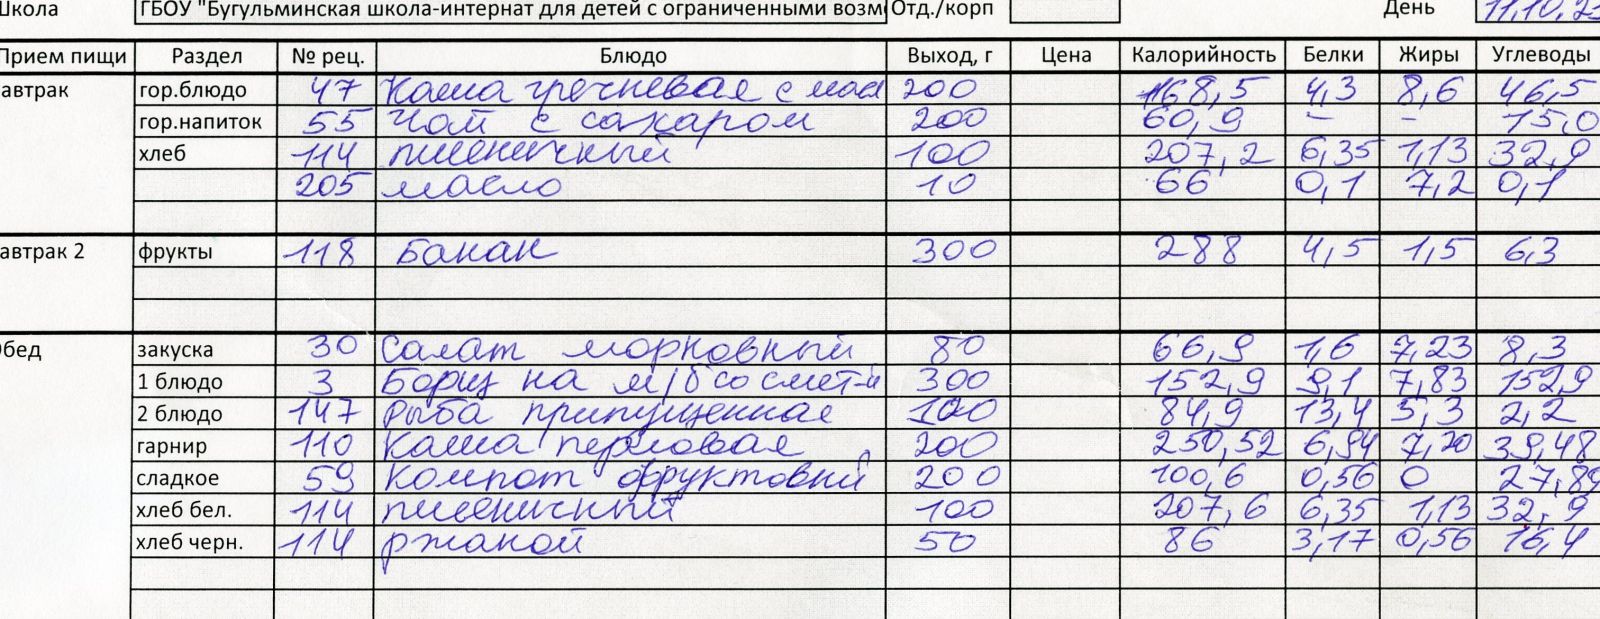 Школа ГБОУ "Бугульминская школа-интернат для детей с ограниченными возм Отд./корп День 11.10.23
Прием пищи Раздел № рец. Блюдо Выход, г Цена Калорийность Белки Жиры Углеводы
автрак гор.блюдо 47 Каша гречневая с мас 200 168,5 4,3 8,6 46,5
гор.напиток 55 Чай с сахаром 200 60,9 – – 15,0
хлеб 114 пшеничный 100 207,2 6,35 1,13 32,9
205 масло 10 66 0,1 7,2 0,1
автрак 2 фрукты 118 Банан 300 288 4,5 1,5 6,3
бед закуска 30 Салат морковный 80 66,9 1,6 7,23 8,3
1 блюдо 3 Борщ на м/б со смет-й 300 152,9 9,1 7,83 152,9
2 блюдо 147 рыба припущенная 100 84,9 13,4 5,3 2,2
гарнир 110 Каша перловая 200 250,52 6,94 7,20 39,48
сладкое 59 Компот фруктовый 200 100,6 0,56 0 27,89
хлеб бел. 114 пшеничный 100 207,6 6,35 1,13 32,9
хлеб черн. 114 ржаной 50 86 3,17 0,56 16,4